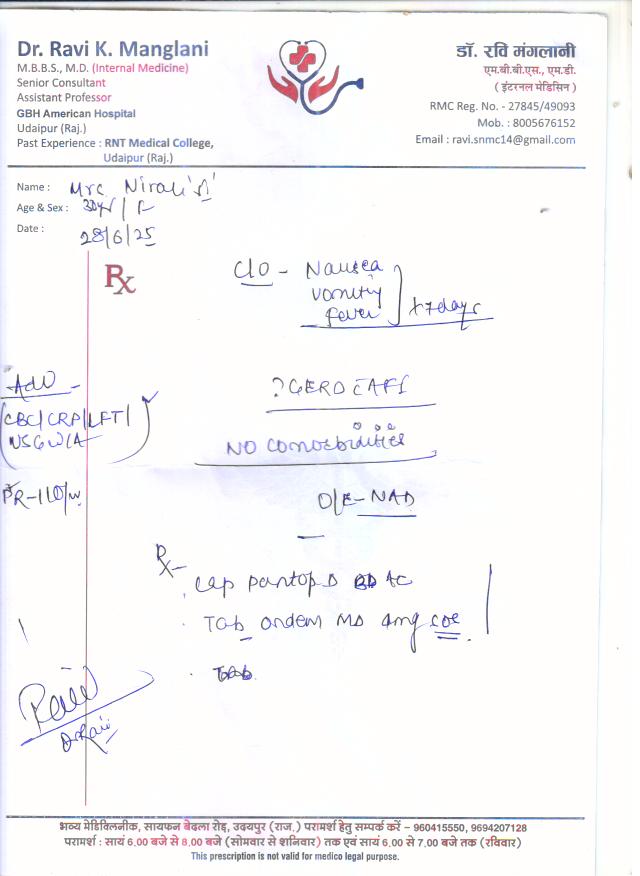 Dr. Ravi K. Manglani
M.B.B.S., M.D. (Internal Medicine)
Senior Consultant
Assistant Professor
GBH American Hospital
Udaipur (Raj.)
Past Experience : RNT Medical College,
Udaipur (Raj.)
डॉ. रवि मंगलानी
एम.बी.बी.एस., एम.डी.
( इंटरनल मेडिसिन )
RMC Reg. No. - 27845/49093
Mob. : 8005676152
Email : ravi.snmc14@gmail.com
Name :
Age & Sex : 30y / F
Date : 28/6/25
Rx
C/O - Nausea
vomity
fever
x 7days
Adv -
CBC/CRP/LFT/
? GERD
NO comorbidities
PR-110/m
O/E-NAD
Rx-
Cap pantop D BD AC
Tab ondem MD 4mg
Tab
Dr Ravi
भव्य मेडिक्लिनीक, सायफन बेदला रोड़, उदयपुर (राज.) परामर्श हेतु सम्पर्क करें – 960415550, 9694207128
परामर्श : सायं 6.00 बजे से 8.00 बजे (सोमवार से शनिवार) तक एवं सायं 6.00 से 7.00 बजे तक (रविवार)
This prescription is not valid for medico legal purpose.